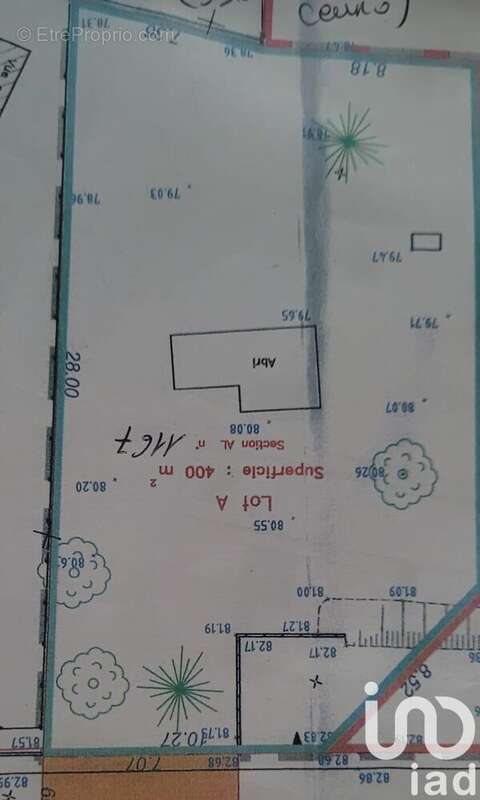 EtreProprio.com
78.31
7.73
78.36
78.67
8.18
78.91
79.03
78.96
79.47
79.65
79.71
28.00
Abri
80.07
80.08
Section AL n° 1167
Superficie : 400 m²
80.26
80.20
Lot A
80.55
81.00
81.09
81.19
81.27
82.17
82.17
8.52
81.79
10.27
82.83
81.57
7.07
82.68
82.60
82.86
82.95
iad